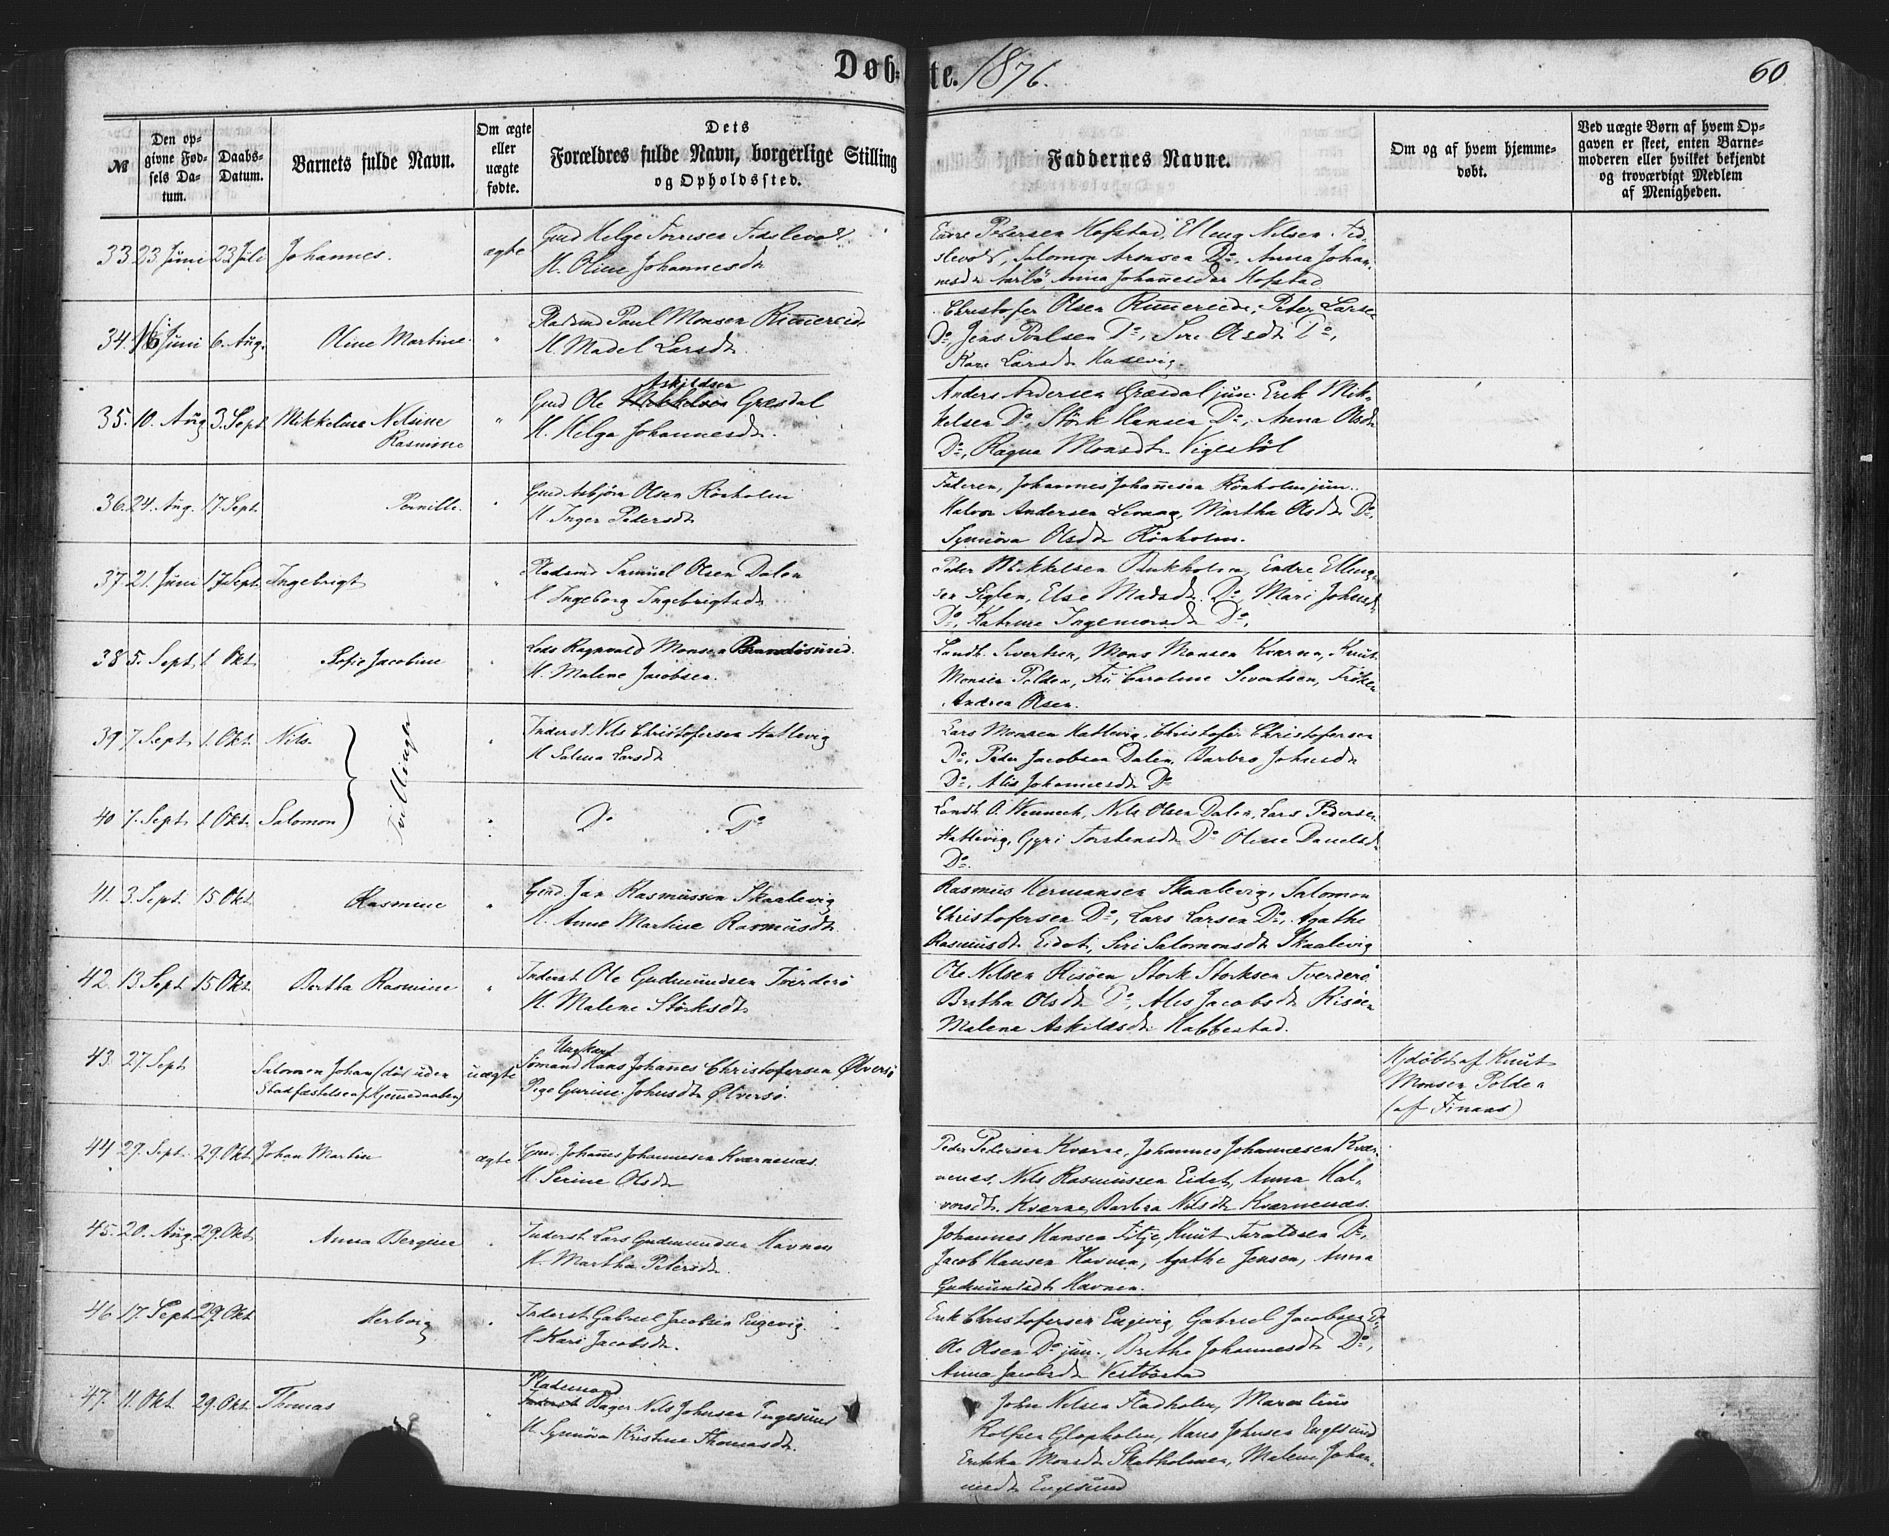 Døb-te. 1876. 60.
№
Den opgivne Fødsels Datum.
Daabs-Datum.
Barnets fulde Navn.
Om ægte eller uægte fødte.
Dets Forældres fulde Navn, borgerlige Stilling og Opholdssted.
Faddernes Navne.
Om og af hvem hjemmedøbt.
Ved uægte Børn af hvem Opgaven er skeet, enten Barnemoderen eller hvilket bekjendt og troværdigt Medlem af Menigheden.
33 23 Juni 23 Juli Johannes. ægte
Gmd Helge
H. Oline Johannesdt
Endre Pedersen Hofstad, Elling Nilsen
Salomon Do, Anna Johan-
nesdr Anna Johannesdr Hofstad
34. 16 Juni 6. Aug. Oline Martine "
Pladsmd Paul Monsen Rimmereide
H. Madel Larsdt.
Christofer Olsen Rimmereide, Peter Larse
Do, Jens Do, Siri Olsdt Do,
Kari Larsdt
35. 10. Aug 3. Sept. Mikkeline Nilsine
Rasmine "
Askildsen
Gmd Ole Græsdal
H. Helga Johannesdt.
Anders Andersen Græsdal jun. Erik Mik-
kelsen Do, Størk Hansen Do, Anna Olsdt
Do, Ragna Monsdt. Vigestøl
36. 24. Aug. 17 Sept. Pernille. "
Gmd Asbjørn Olsen Rønholm
H Inger Pedersdt
Faderen, Johannes Johannesen Rønholm jun.
Halvor Andersen Martha Olsdt Do,
Synnøva Olsdt Rønholm.
37 21. Juni 17 Sept. Ingebrigt "
Pladsmd Samuel Olsen Dalen
H Ingeborg Ingebrigtsdt
Peder Mikkelsen Endre Elling-
sen Else Madsdt. Do, Mari Johnsdt
Do, Katrine Do,
38 5. Sept. 1 Okt. Sofie Jacobine "
Lods Ragnvald Monsen Brandøsund.
H. Malene Jacobsen.
Landh. Sivertsen, Mons Monsen Kværne, Knut
Monsen Polden, Fru Caroline Sivertsen, Frøken
Andrea Olsen.
39 7 Sept. 1. Okt. Nils. "
Tvillinger
Inderst. Nils Christofersen Hattevig
H Salma Larsdt
Lars Monsen Hattevig, Christofer Christofersen
Do, Peder Jacobsen Dalen, Barbro Johnsdt
Do, Alis Johannesdt Do
40 7. Sept. 1 Okt. Salomon "
Do Do
Landh. O. Wennech, Nils Olsen Dalen, Lars Pedersen
Hattevig, Gyri Torstensdt Do Oline Danielsdt
Do.
41. 3. Sept. 15 Okt. Rasmine "
Gmd. Jan Rasmussen Skaalevig
H. Anne Martine Rasmusdt
Rasmus Hermansen Skaalevig, Salomon
Christofersen Do, Lars Larsen Do, Agathe
Rasmusdt. Eidet, Siri Salomonsdt Skaalevig
42. 13. Sept 15 Okt. Bertha Rasmine "
Inderst. Ole Gudmundsen Tverderø
H. Malene Størksdt
Ole Nilsen Risøen Størk Størksen Tverderø
Britha Olsdt Do, Alis Jacobsdt Risøen
Malena Askildsdt. Habbestad.
43. 27. Sept Salomon Johan (død uden
Stadfæstelsen af Hjemmedaaben) uægte
Ungkarl
Sømand Hans Johannes Christofersen Ølversø
Pige Gurine Johnsdt. Ølversø.
Hjdøbt af Knut
Monsen Polden
(af Finaas)
44 29. Sept. 29. Okt. Johan Martin ægte
Gmd. Johannes Johannesen Kværnenæs.
H. Serine Olsdt
Peder Pedersen Kværne, Johannes Johannesen Kvær-
nenæs, Nils Rasmussen Eidet, Anna Hal-
vorsdt. Kværne, Barbra Nilsdt Kværnenæs.
45. 20. Aug 29. Okt. Anna Bergine "
Inderst Lars Gudmundsen Havnen
H. Martha Petersdt.
Johannes Hansen Fitje, Knut Do,
Jacob Hansen Havnen, Agathe Jensen, Anna
Gudmundsdt. Havnen.
46. 17. Sept 29. Okt Herborg "
Inderst. Gabriel Jacobsen Engevig.
H Kari Jacobsdt.
Erik Christofersen Engevig, Gabriel Jacobsen Do
Ole Olsen Do jun., Brithe Johannesdt Do,
Anna Jacobsdt Vestbøstad
47. 11. Okt 29. Okt. Thomas "
Pladsmand
Inderst Nils Johnsen Engesund
H. Synnøva Kristine Thomasdt.
John Nilsen Fladholm, Marentius
Hans Johnsen Englsund
Monsdt Skatholmen, Malene Johan-
nesdt Englsund